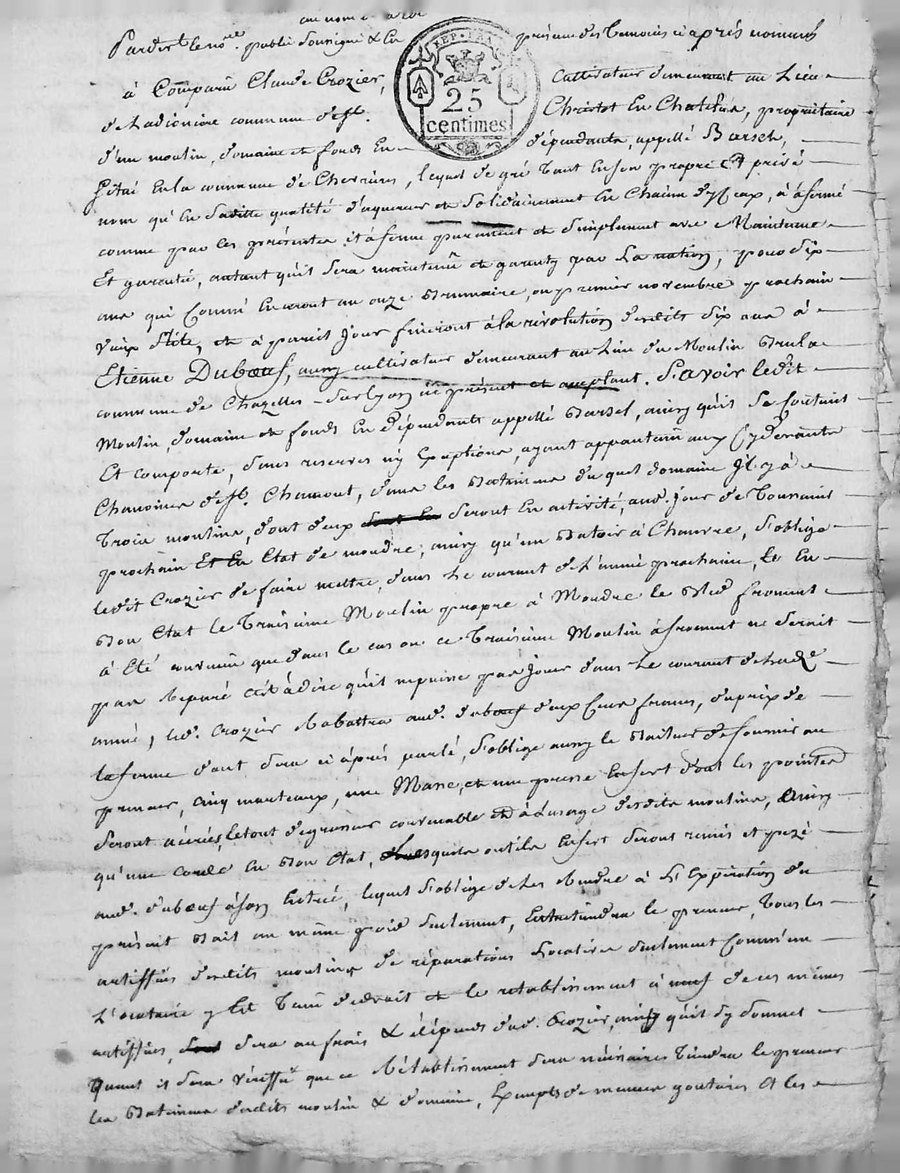 au nom
Pardevt le nore. public soussigné & En présence des temoins ci après nommés
REP. FRA.
25
centimes
à Comparu Claude Crozier, Cultivateur demeurant au Lieu
de Ladioniere commune de st. Christot En Chatelus, propriétaire
d'un moulin, domaine et fonds En dépendants, appellé Barsel,
situé En la commune de Chevrières, lequel de gré tant En son propre Et privé
nom qu'En saditte qualité d'aquereur et solidairement En Chacun d'yceux, à afermé
comme par les présentes il à ferme purement et simplement avec Maintenue
Et garentie, autant qu'il sera maintenu et garenty par La nation, pour dix
ans qui Commenceront au onze Brumaire, ou premier novembre prochain
vieux stile, et à pareil jour finiront à la révolution desdits dix ans à
Etienne Duboeuf, aussy cultivateur demeurant au Lieu du Moulin Brula
commune de Chazelles sur Lyon icy présent et acceptant. Savoir ledit
Moulin, domaine et fonds En dépendants appellé Barsel, ainsy qu'il se contient
Et comporte, sans reserves ny Exceptions, ayant appartenu aux Cydevants
Chanoines de st. Chamont, dans les Batimens duquel domaine Il y à
Trois moulins, dont deux seront En activité, aud. jour de Toussaint
prochain Et En Etat de moudre; ainsy qu'un Batoir à Chanvre, s'oblige
ledit Crozier de faire mettre, dans Le courant de L'année prochaine, Le En
Bon Etat le Troisième Moulin propre à Moudre le Bled froment
à Eté convenu que dans le cas ou ce Troisième Moulin à froment ne seroit
pas reparé c'est à dire qu'il ne puisse pas jour dans Le courant de ladte.
année, led. Crozier Rabattra aud. Duboeuf deux Cens francs, du prix de
la ferme dont sera ci après parlé, s'oblige aussy le Bailleur de fournir au
preneur, cinq marteaux, une Masse, et une presse En fert dont les pointes
seront aciérées, le tout de grosseur convenable Et à Lusage desdits moulins, Ainsy
qu'une corde En Bon Etat, Lesquels outils En fert seront remis et pezé
aud. Duboeuf à son Entrée, lequel s'oblige de Les Rendre à L'Expiration du
présent Bail au même poid seulement, Entretiendra le preneur, tous les
artiffices desdits moulins de réparations Locatives seulement Comme un
Locataire y Est Tenu de droit et le retablissement à neuf de ces mêmes
artiffices, sera au frais & dépens dud. Crozier, ainsy qu'il s'y soumet
quant il sera vériffié que ce Rétablissement sera nécessaires Tiendra le preneur
les Batimens desdits moulin & domaine, Exempts de menues goutières Et les